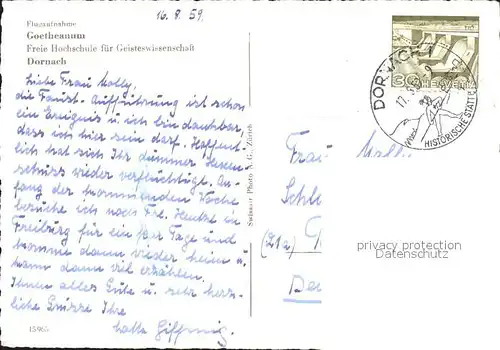 16.8.59.
Flugaufnahme
Goetheanum
Freie Hochschule für Geisteswissenschaft
Dornach
Liebe Frau Molly,
die Faust-Aufführung ist schon
ein Ereignis u ich bin dankbar,
dass ich hier sein darf. Hoffent-
lich hat sich Ihr dummer Hexen-
schuss wieder verflüchtigt. An-
fang der kommenden Woche
besuche ich noch Frl. in
Freiburg für ein paar Tage und
komme dann wieder heim u
kann dann viel erzählen.
Ihnen alles Gute u. sehr herz-
liche Grüsse Ihre
15965
Swissair Photo A. G., Zürich
30
HELVETIA
DORNACH 1
HISTORISCHE STÄTTE
Frau
(21a)
privacy protection
Datenschutz